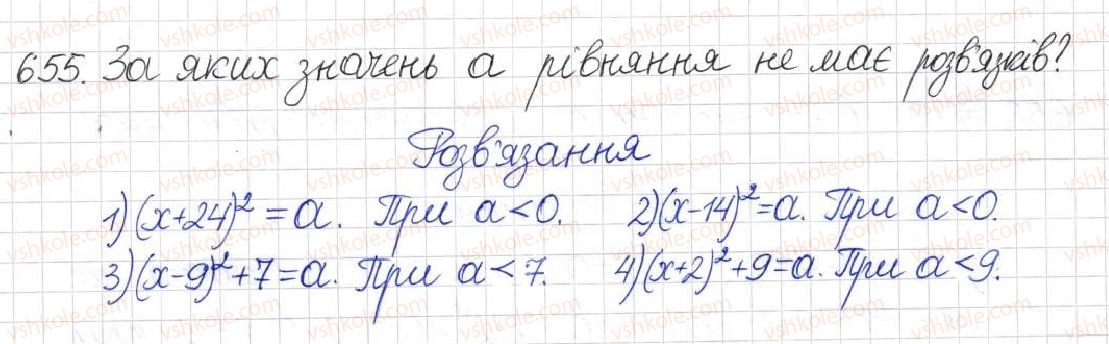 655. За яких значень а рівняння не має розв'язків?
Розв'язання
1) (x+24)² = a. При a < 0. 2) (x-14)² = a. При a < 0.
3) (x-9)² + 7 = a. При a < 7. 4) (x+2)² + 9 = a. При a < 9.